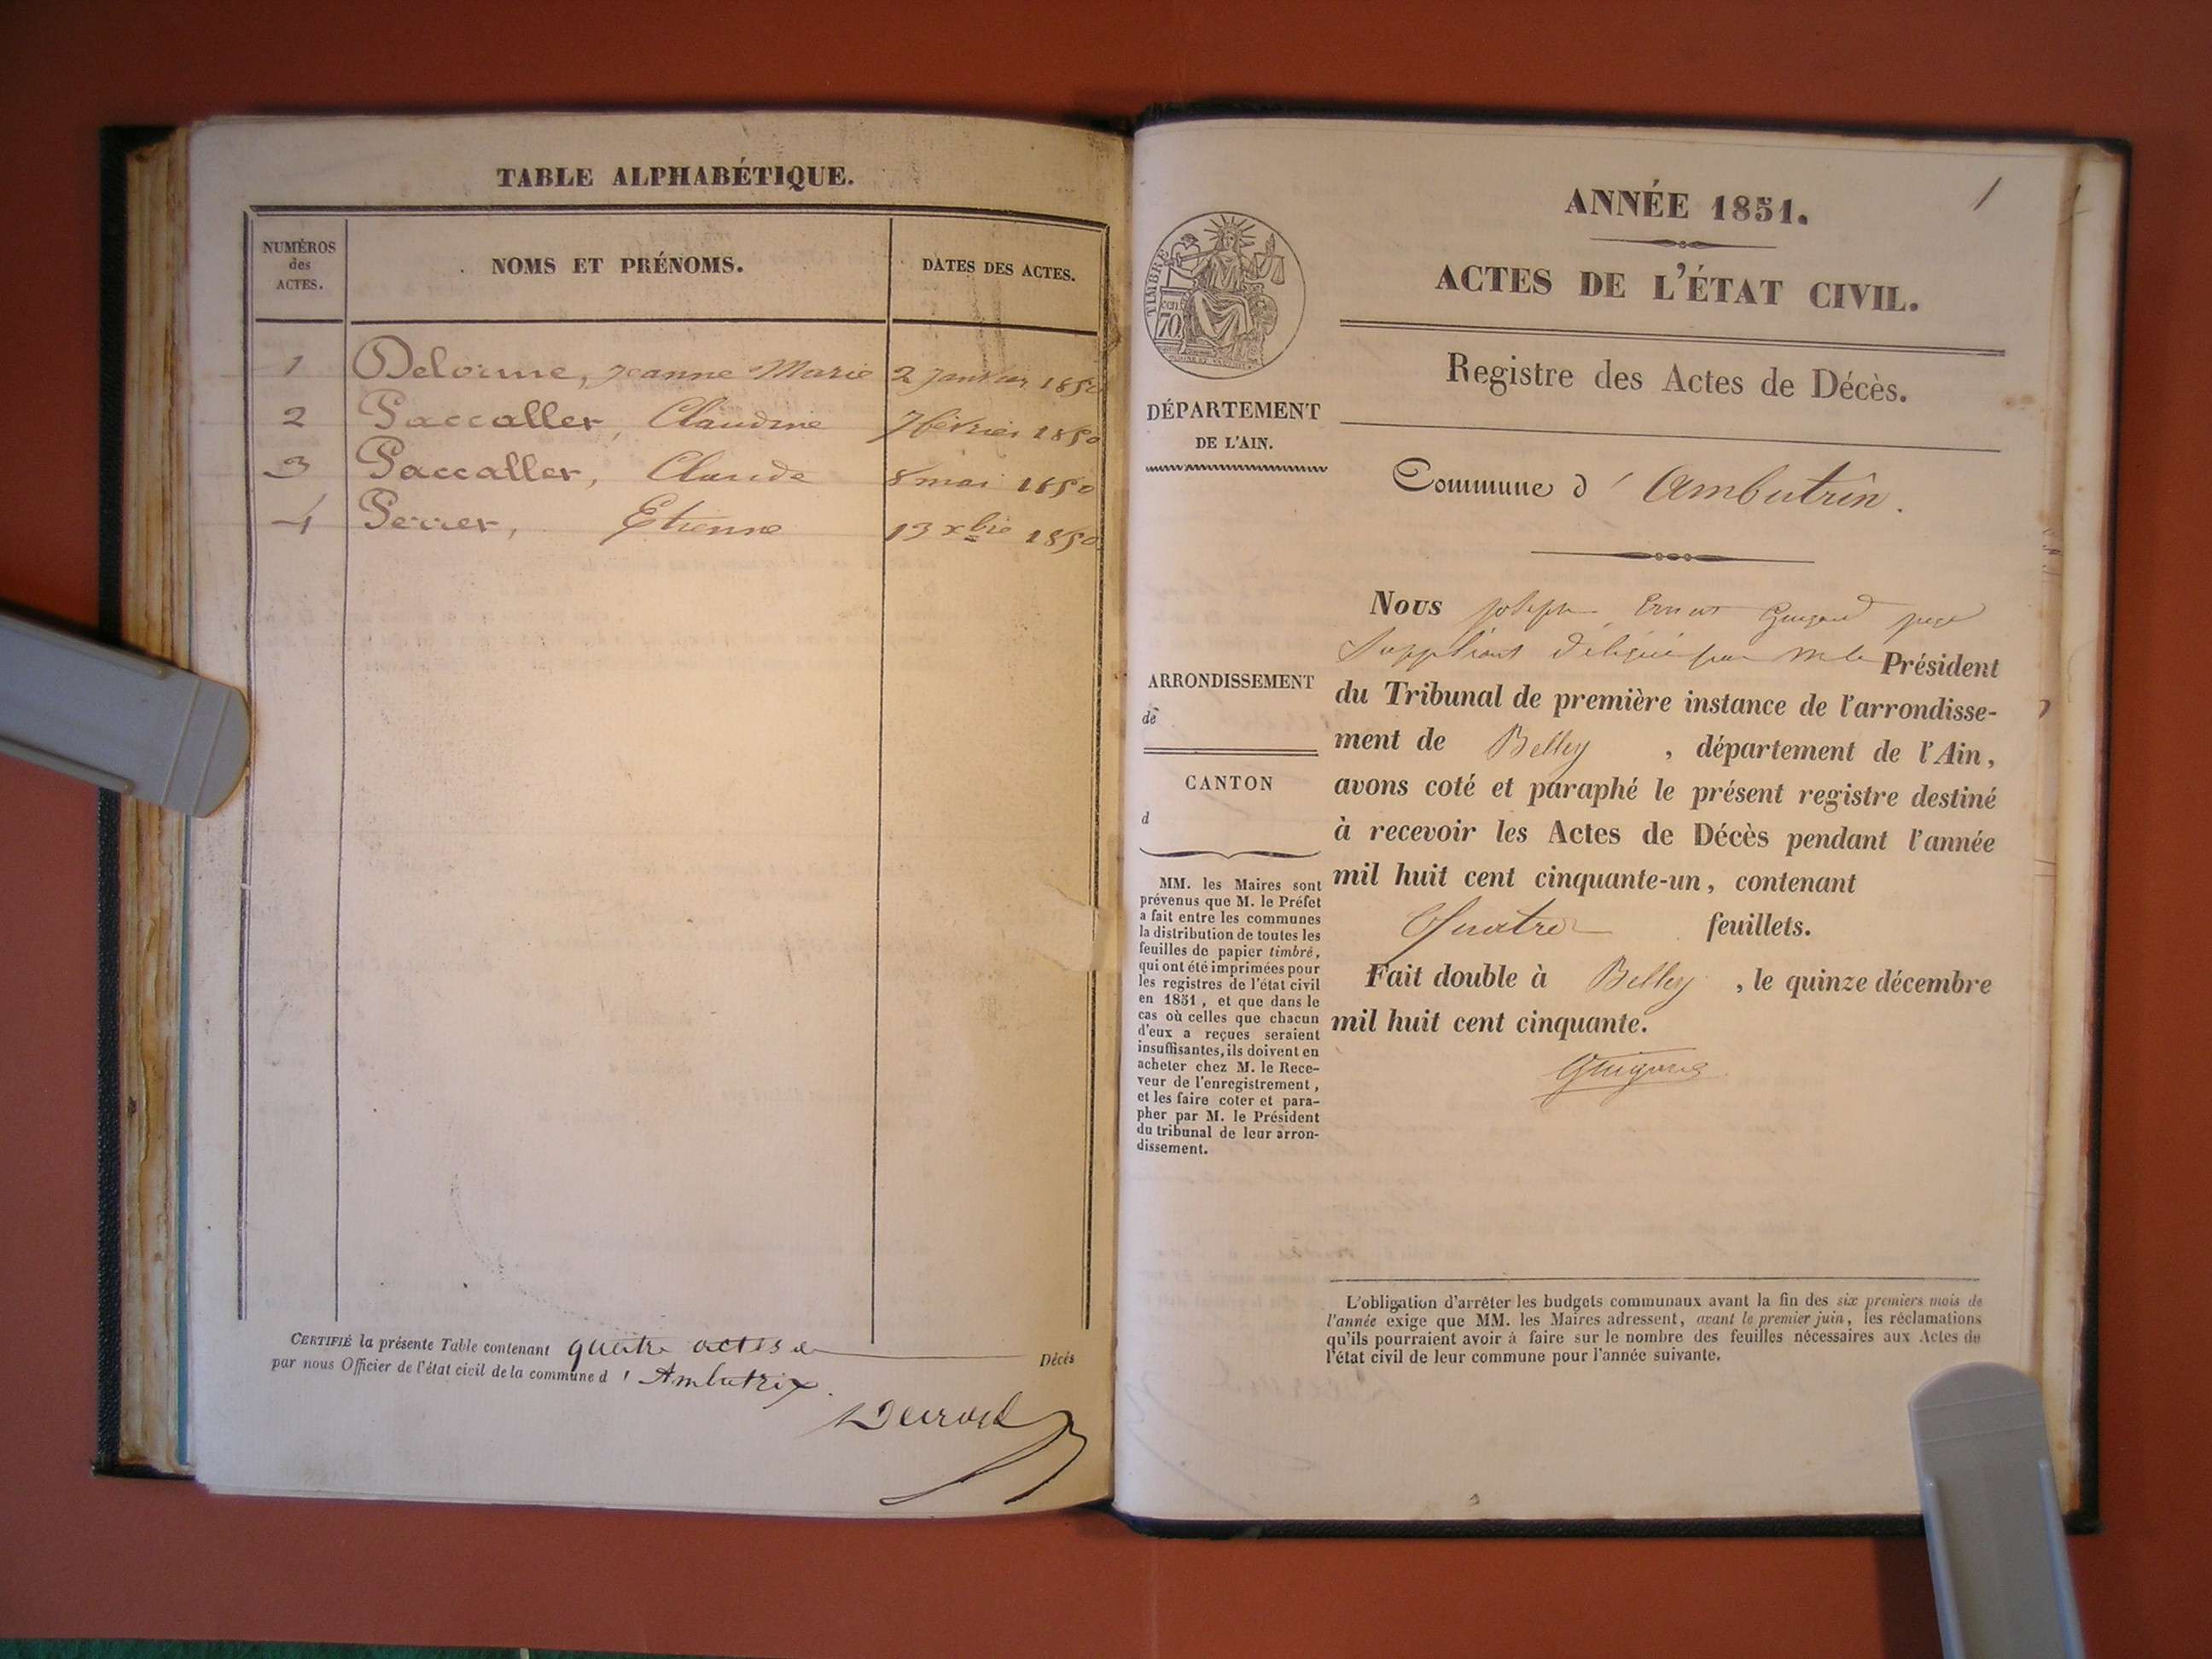 TABLE ALPHABÉTIQUE.
NUMÉROS
des
ACTES.
NOMS ET PRÉNOMS.
DATES DES ACTES.
1 Delorme, Jeanne Marie 2 Janvier 1850
2 Paccaller, Claudine 7 février 1850
3 Paccaller, Claude 8 mai 1850
4 Perrer, Etienne 13 xbre 1850
CERTIFIÉ la présente Table contenant quatre actes de Décés
par nous Officier de l'état civil de la commune d' Ambutrix.
1
ANNÉE 1851.
ACTES DE L'ÉTAT CIVIL.
Registre des Actes de Décès.
TIMBRE
70
DÉPARTEMENT
DE L'AIN.
Commune d' Ambutrix.
ARRONDISSEMENT
de
CANTON
d
MM. les Maires sont
prévenus que M. le Préfet
a fait entre les communes
la distribution de toutes les
feuilles de papier timbré,
qui ont été imprimées pour
les registres de l'état civil
en 1851, et que dans le
cas où celles que chacun
d'eux a reçues seraient
insuffisantes, ils doivent en
acheter chez M. le Rece-
veur de l'enregistrement,
et les faire coter et para-
pher par M. le Président
du tribunal de leur arron-
dissement.
Nous Joseph Ernest juge
Suppléant délégué par M le Président
du Tribunal de première instance de l'arrondisse-
ment de Belley, département de l'Ain,
avons coté et paraphé le présent registre destiné
à recevoir les Actes de Décès pendant l'année
mil huit cent cinquante-un, contenant
Quatre feuillets.
Fait double à Belley, le quinze décembre
mil huit cent cinquante.
L'obligation d'arrêter les budgets communaux avant la fin des six premiers mois de
l'année exige que MM. les Maires adressent, avant le premier juin, les réclamations
qu'ils pourraient avoir à faire sur le nombre des feuilles nécessaires aux Actes de
l'état civil de leur commune pour l'année suivante.